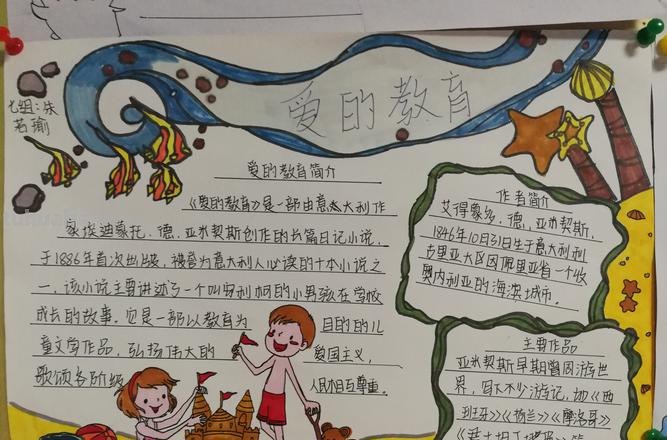 爱的教育
七组:朱
若瑜
爱的教育简介
《爱的教育》是一部由意大利作
家埃迪蒙托·德·亚米契斯创作的长篇日记小说,
于1886年首次出版,被誉为意大利人必读的十本小说之
一。该小说主要讲述了一个叫安利柯的小男孩在学校
成长的故事。它是一部以教育为目的的儿
童文学作品,弘扬伟大的爱国主义,
歌颂各阶级人民相互尊重。
作者简介
艾得蒙多·德·亚米契斯,
1846年10月31日生于意大利利
古里亚大区因佩里亚省一个
奥内利亚的海滨城市。
主要作品
亚米契斯早期曾周游世
界,写大不少游记,如《西
班牙》《荷兰》《摩洛哥》